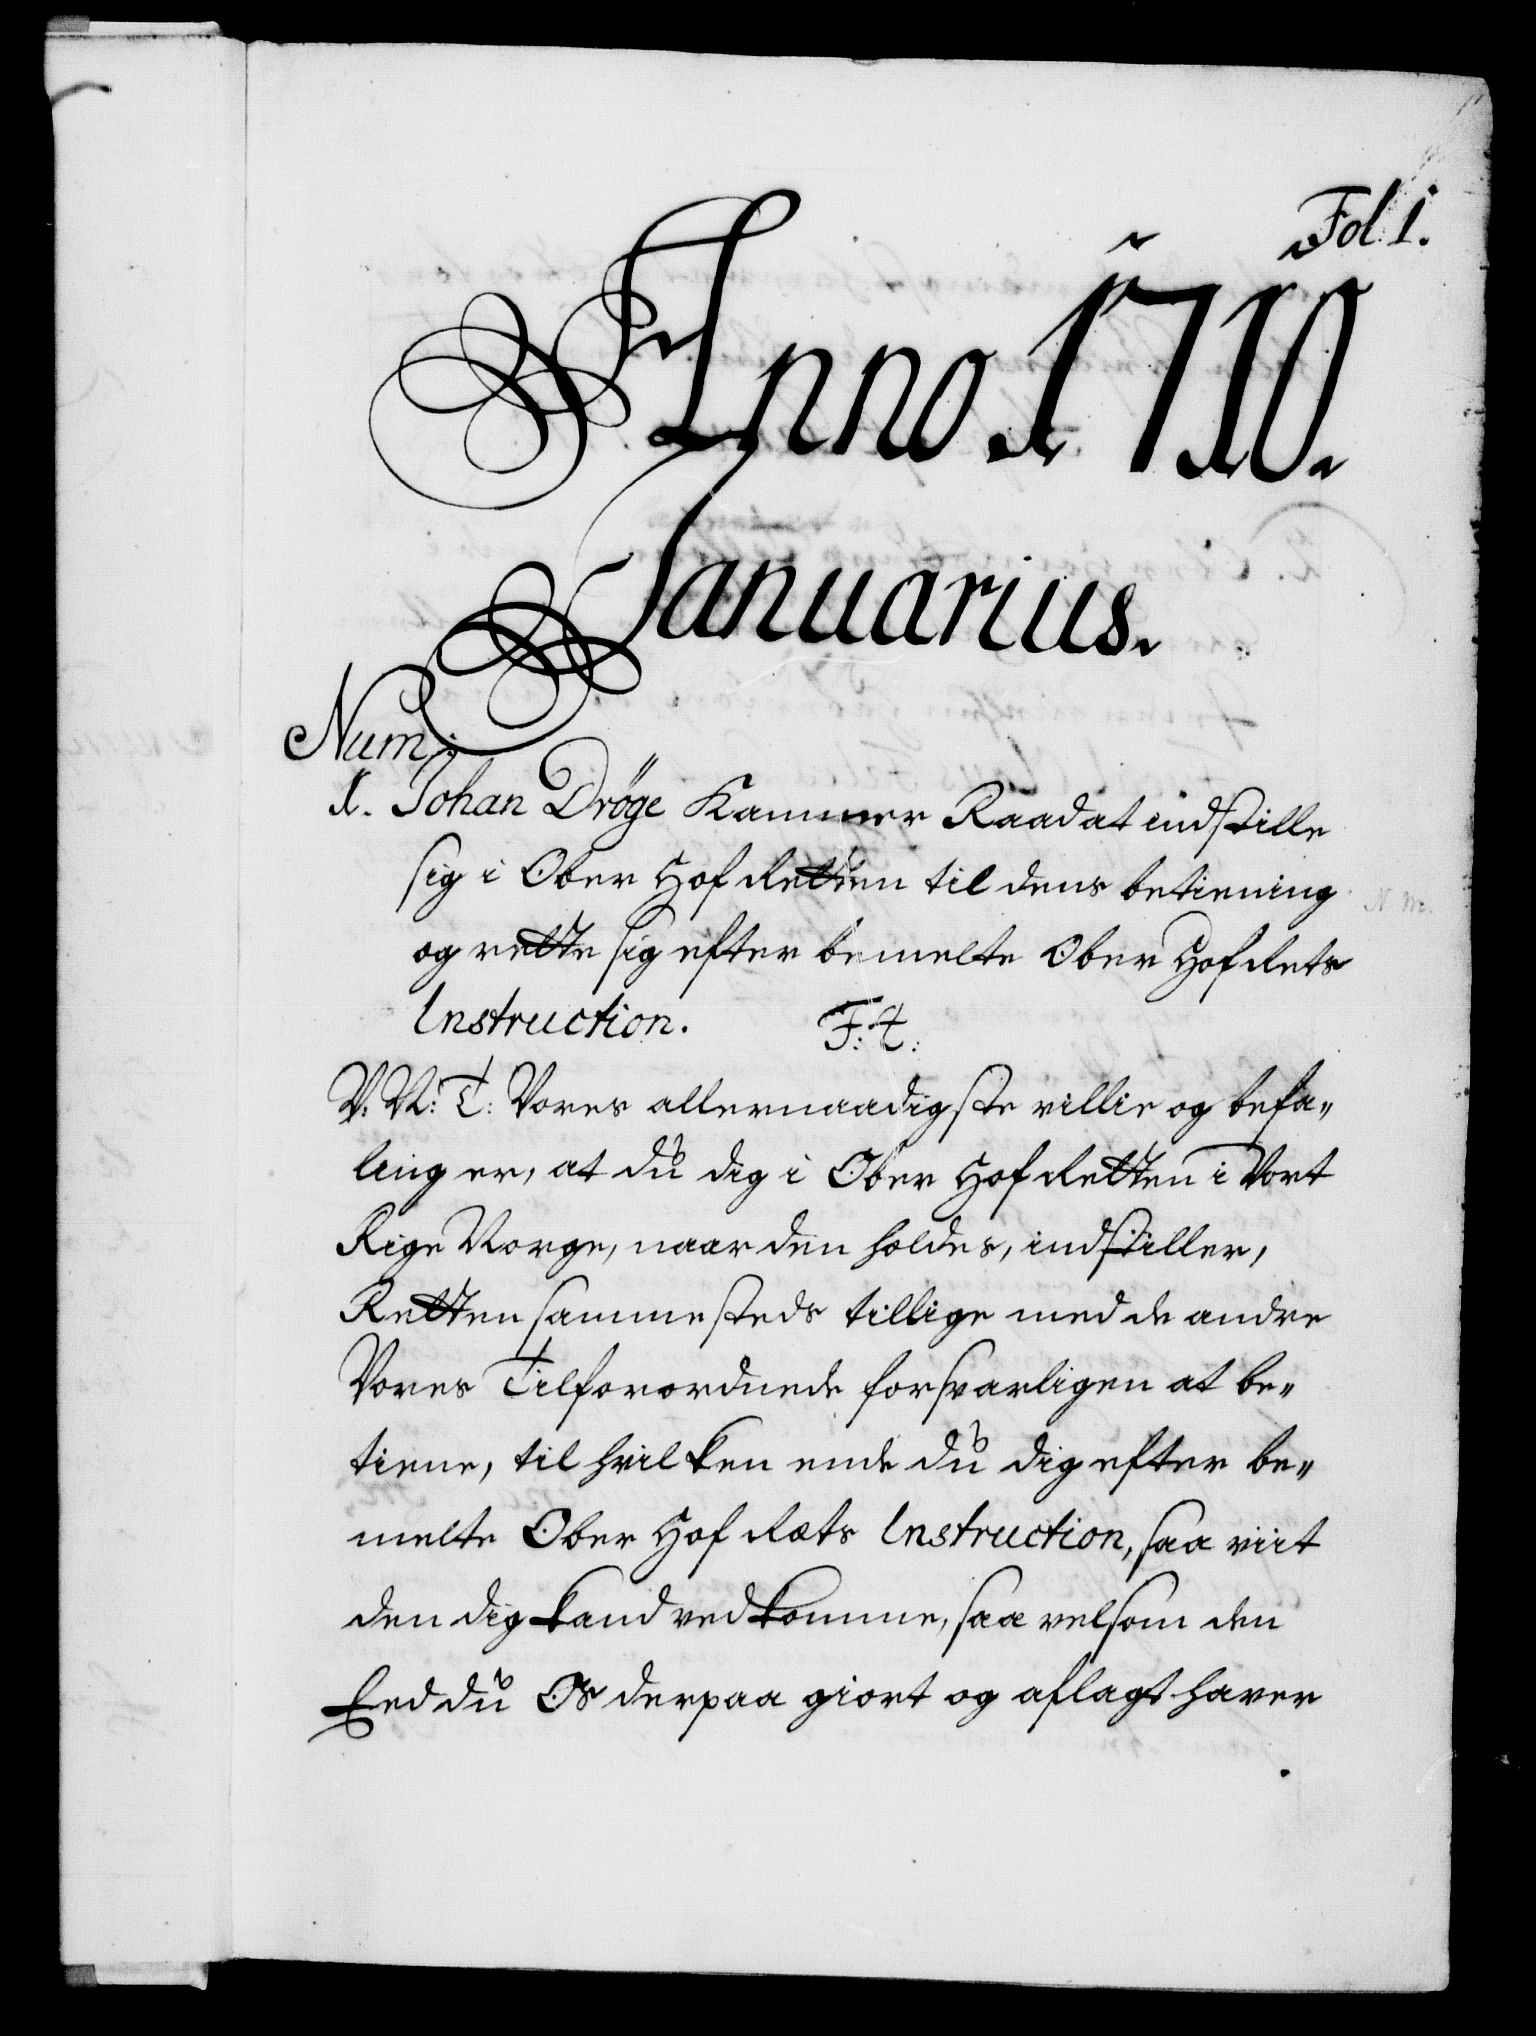 Fol. 1.
Anno 1710.
Januarius.
Num:
1. Johan Dröge Kammer Raad at indstille
sig i Ober Hof Retten til dens betiening
og rette sig efter bemelte Ober Hof Rets
Instruction. F: 4:
V: N: T: Vores allernaadigste villie og befa„
ling er, at du dig i Ober Hof Retten i Vort
Rige Norge, naar den holdes, indstiller,
Retten sammesteds tillige med de andre
Vores Tilforordnede forsvarligen at be„
tiene, til hvilken ende du dig efter be„
melte Ober Hof Ræts Instruction, saa viit
den dig kand vedkomme, saa velsom den
Eed du Os derpaa giort og aflagt haver